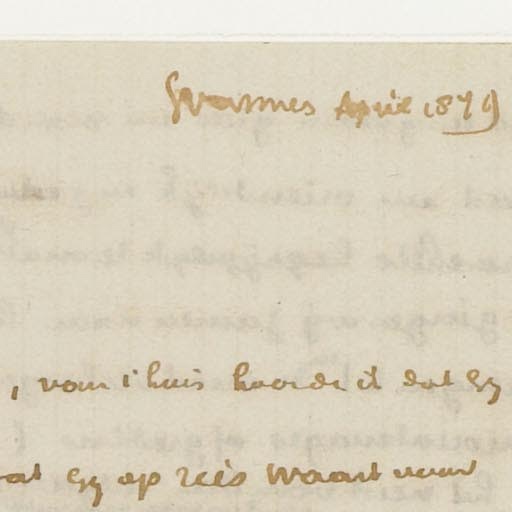 Wasmes April 1879
, van 't huis hoorde ik dat Gy
at Gy op reis waart naar